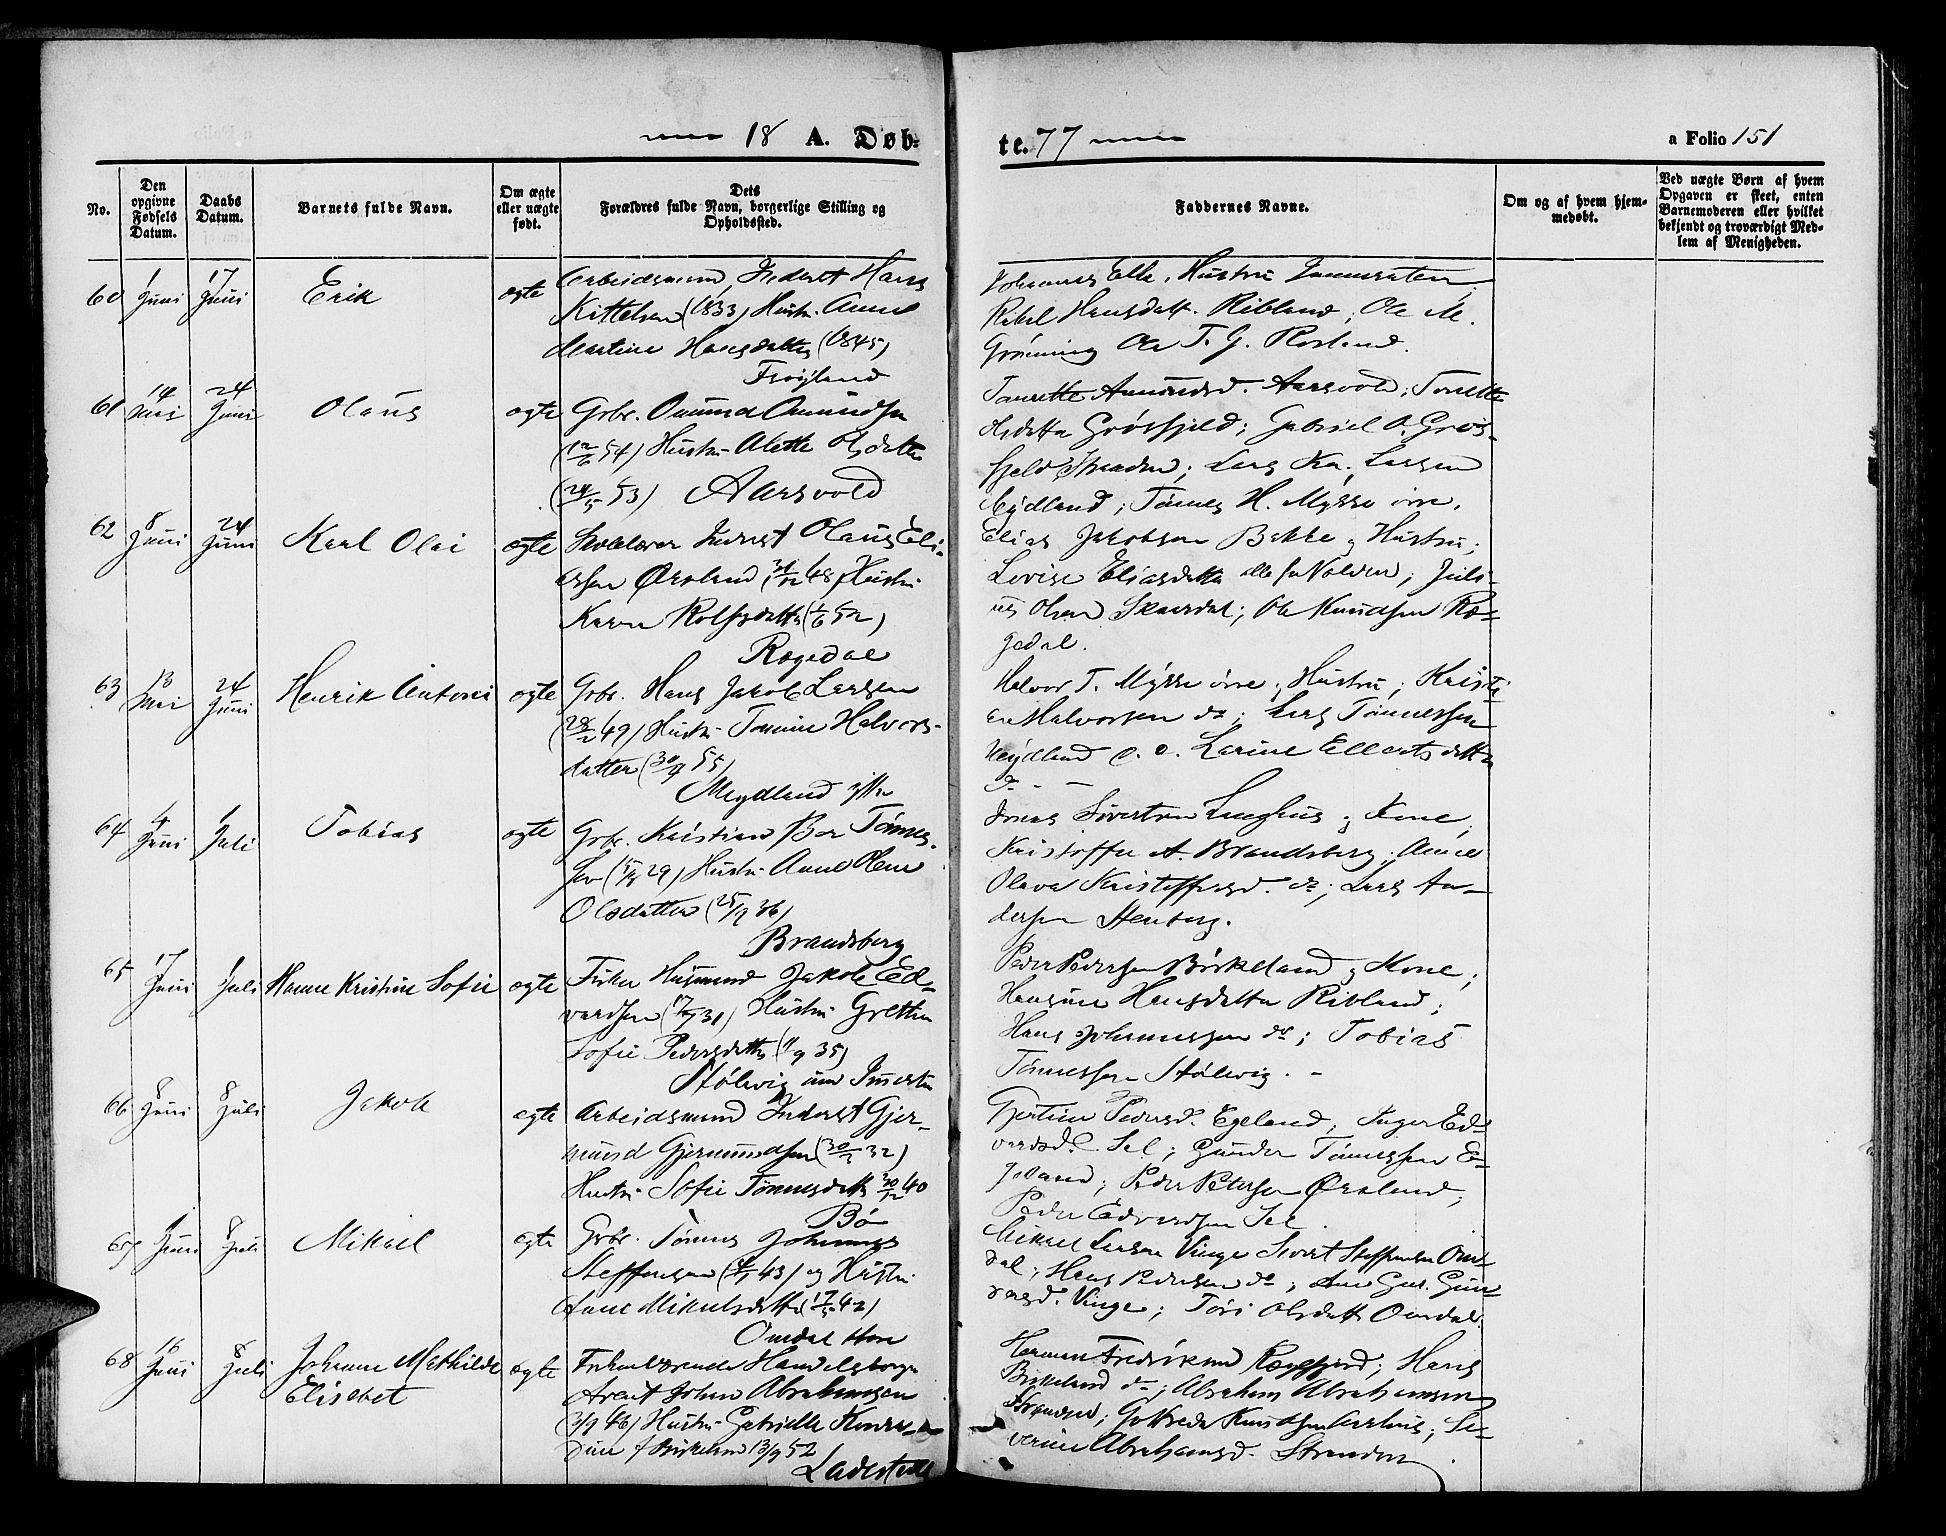 18 A. Døb-
te. 77
a Folio 151
No.
Den opgivne Fødsels Datum.
Daabs Datum.
Barnets fulde Navn.
Om ægte eller uægte født.
Dets Forældres fulde Navn, borgerlige Stilling og Opholdssted.
Faddernes Navne.
Om og af hvem hjemmedøbt.
Ved uægte Børn af hvem Opgaven er skeet, enten Barnemoderen eller hvilket bekjendt og troværdigt Medlem af Menigheden.
60 1 Juni 17 Juni Erik ægte Arbeidsmand, Inderst Hans
Kittelsen (1833) Hustr. Anne
Martine Hansdatter (1845)
Frøyland
Rakel Hansdatt. Ribland; Ole M.
Grønning Ole T. G. Rosland.
61 14 Mai 24 Juni Olaus ægte Grbr. Omund Omundsen
(12/6 54) Hustr. Alette Olsdatter
(24/5 53) Aarsvold
Taurette Amundsd. Aarsvold; Tonette
Olsdatter Grøsfjeld; Gabriel O. Grøs-
fjeld Lars Ka. Larsen
Mydland; Tønnes H. Mysse øvre.
62 8 Juni 24 Juni Karl Olai ægte Skolelærer Inderst Olaus Eli-
assen Ørsland (31/12 48) Hustr.
Karen Rolfsdatter (1/6 52)
Rægedal
Elias Jakobsen Bakke og Hustru;
Lovise Eliasdatter alle fra Nolden; Juli-
us Olsen Skarsdal; Ole Knudsen Ræ-
gedal.
63 13 Mai 24 Juni Henrik Antoni ægte Grbr. Hans Jakob Larsen
(28/2 49) Hustr. Tonine Halvors-
datter (30/9 55)
Meydland ytre
Halvor T. Mysse øvre og Hustru; Kristi-
an Halvorsen do; Lars Tønnessen
Meydland o. a. Larine Ellertsdatter
do - -
64 4 Juni 1 Juli Tobias ægte Grbr. Kristian Ber Tønnes-
sen (29) Hustr. Anne Olene
Olsdatter (25/9 36)
Brandsberg
Jonas Sivertsen Leeghus og Kone,
Kristoffer A. Brandsberg; Anne
Olava Kristoffersd. do; Lars An-
dersen Stenberg.
65 17 Juni 1 Juli Hanne Kristine Sofie ægte Fisker Husmand Jakob Ed-
vardsen (17/7 31) Hustr. Grethe
Sofie Pedersdatter (11/9 35)
Stølevig
Peder Pedersen Birkeland og Kone;
Hansine Hansdatter Ribland;
Hans Johannessen do; Tobias
Tønnessen Stølevig. -
66 8 Juni 8 Juli Jakob ægte Arbeidsmand Inderst Gjer-
mund Gjermundsen (30/3 32)
Hustr. Sofie Tønnesdatt. 30/12 40
Bø
Gjertine Pedersd. Egeland, Inger Ed-
vardsd. Sel; Gunder Tønnessen E-
geland; Peder Petersen Ørsland;
Peder Edvardsen Sel.
67 1 Juni 8 Juli Mikael ægte Grbr. Tønnes Johannes
Steffensen (4/1 43) og Hustr.
Anne Mikalsdatter (17/5 42)
Omdal
Mikael Larsen Vinge Sivert Steffensen Om-
dal; Hans Pedersen do; Ane Gur. Gun-
vorsd. Vinge; Tori Olsdatt. Omdal.
68 16 Juni 8 Juli Johanne Mathilde
Elisebet
ægte Handelsborger
Arent Johan Abrahamsen
(3/9 46) Hustr. Gabrielle Konra-
dine f. Birkeland 13/9 52
Ladested
Herman Fredriksen Rægefjord; Hans
Birkeland do; Abraham Abrahamsen
Stranden; Gotfreda Knudsen Aarhus; Se-
verine Abrahamsd. Stranden